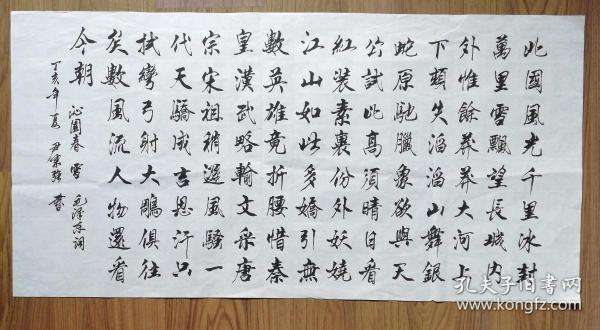 北國風光千里冰封
萬里雪飄望長城內
外惟餘莽莽大河上
下頓失滔滔山舞銀
蛇原馳臘象欲與天
公試比高須晴日看
紅裝素裹份外妖嬈
江山如此多嬌引無
數英雄竟折腰惜秦
皇漢武略輸文采唐
宗宋祖稍遜風騷一
代天驕成吉思汗只
拭彎弓射大鵰俱往
矣數風流人物還看
今朝
沁園春 雪 毛澤东詞
丁亥年夏 尹 書
孔夫子旧书网
www.kongfz.com